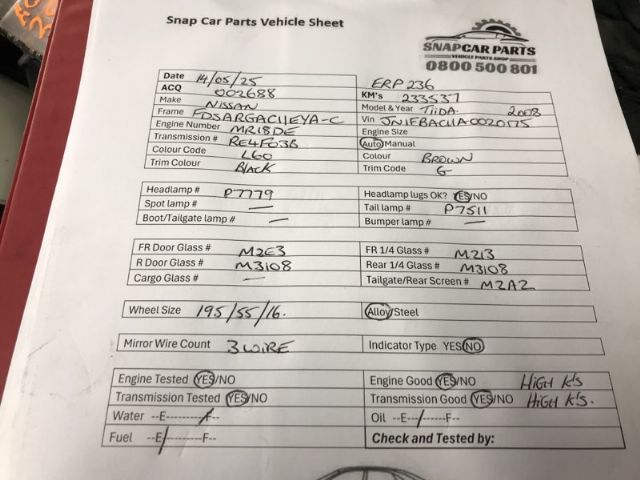 Snap Car Parts Vehicle Sheet
SNAPCAR PARTS
VEHICLE PARTS SHOP
0800 500 801
Date 14/05/25 ERP236
ACQ 002688 KM's 233537
Make NISSAN Model & Year TIIDA 2008
Frame FDSARGAC11EYA-C Vin JN1FBAC11A0020175
Engine Number MR18DE Engine Size
Transmission # RE4F03B Auto/Manual
Colour Code L60 Colour BROWN
Trim Colour BLACK Trim Code G
Headlamp # P7779 Headlamp lugs OK? YES/NO
Spot lamp # — Tail lamp # P7511
Boot/Tailgate lamp # — Bumper lamp # —
FR Door Glass # M2E3 FR 1/4 Glass # M213
R Door Glass # M3108 Rear 1/4 Glass # M3108
Cargo Glass # — Tailgate/Rear Screen # M2A2
Wheel Size 195/55/16. Alloy/Steel
Mirror Wire Count 3 WIRE Indicator Type YES/NO
Engine Tested YES/NO Engine Good YES/NO HIGH K's
Transmission Tested YES/NO Transmission Good YES/NO HIGH K's.
Water --E---------F-- Oil --E--/------F--
Fuel --E/--------F-- Check and Tested by: